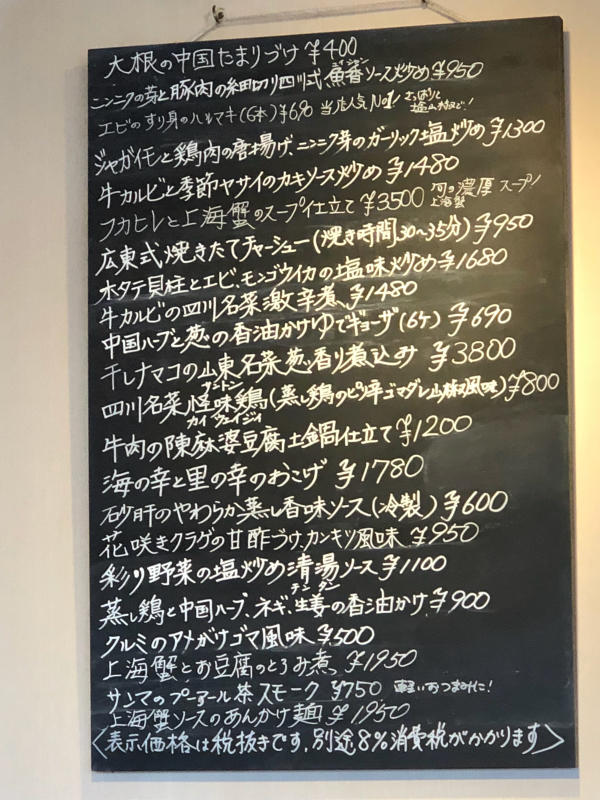 大根の中国たまりづけ ¥400
ニンニクの芽と豚肉の細切り四川式魚香ソース炒め ¥950
エビのすり身のハルマキ(6本) ¥690 当店人気No1! さっぱりと塩山椒で!
ジャガイモと鶏肉の唐揚げ、ニンニク芽のガーリック塩炒め ¥1300
牛カルビと季節ヤサイのカキソース炒め ¥1480
フカヒレと上海蟹のスープ仕立て ¥3500 上海蟹の濃厚スープ!
広東式、焼きたてチャーシュー(焼き時間30〜35分) ¥950
ホタテ貝柱とエビ、モンゴウイカの塩味炒め ¥1680
牛カルビの四川名菜激辛煮、¥1480
中国ハーブと葱の香油かけゆでギョーザ(6ケ) ¥690
干しナマコの山東名菜葱香り煮込み ¥3800
サントン
四川名菜怪味鶏(蒸し鶏のピリ辛ゴマダレ山椒風味) ¥800
カイ ウェイ ジィ
牛肉の陳麻婆豆腐土鍋仕立て ¥1200
海の幸と里の幸のおこげ ¥1780
砂肝のやわらか蒸し香味ソース(冷製) ¥600
花咲きクラゲの甘酢づけ、カンキツ風味 ¥950
彩り野菜の塩炒め清湯ソース ¥1100
チンタン
蒸し鶏と中国ハーブ、ネギ、生姜の香油かけ ¥900
クルミのアメがけゴマ風味 ¥500
上海蟹とお豆腐のとろみ煮、¥1950
サンマのプーアール茶スモーク ¥750 軽いおつまみに!
上海蟹ソースのあんかけ麺 ¥1950
〈表示価格は税抜きです。別途8%消費税がかかります〉